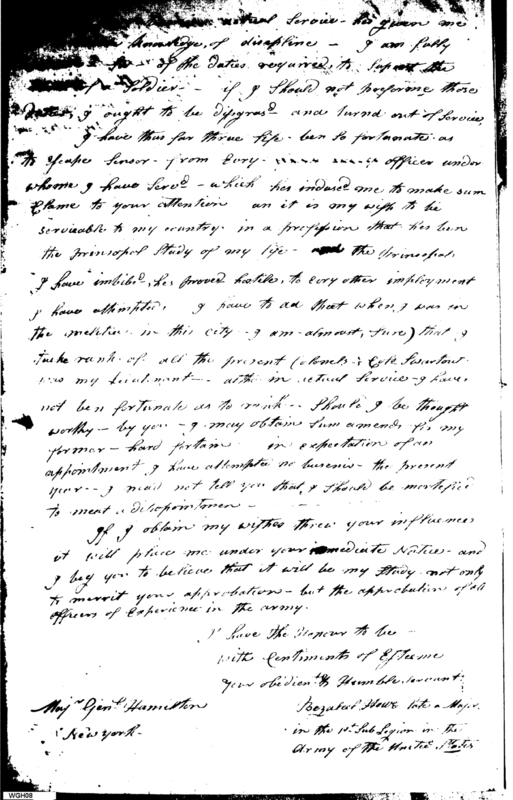 actual Service - has given me
knowledge, of disapline - I am fully
of the dutes required to Suport the
of a Soldier - if I Should not preforme those
I ought to be disgrasd and turnd out of Service
I have thus far threw life - ben So fortunate as
to escape Sensor - from Evry officer under
whome I have Servd - which has indused me to make sum
Clame to your attention an it is my wish to be
serviceable to my country in a profession that has ben
the prinsopal Study of my life - the prinsopals
I have imbibd, has proved hostile, to evry other imployment
I have attempted, I have to ad that when I was in
the melitia in this city - I am - almost, Sure) that I
tucke rank of all the present Colonels;
was my Lieutenant - altho in actual Service - I have
not ben fortunate as to rank - Should I be thought
worthy - by you - I may obtain Sum amends for my
former - hard fortain in expectation of an
appointment I have attempted no buseniss - the present
year - I need not tell you that, I should be mortefied
to meat a disopointmen -
If I obtain my wishes threw your influence
it will place me under your imediate Notice - and
I beg you to believe that it will be my Study not only
to merrit your approbation - but the approbation of all
officers of Experience in the army.
I have the Honour to be
with Centiments of Esteeme
your obedient & Humble servant
Majr Genl Hamilton
New york -
Bezaleel Howe late a Major
in the 1st Sub Legion in the
Army of the United States
WGH08